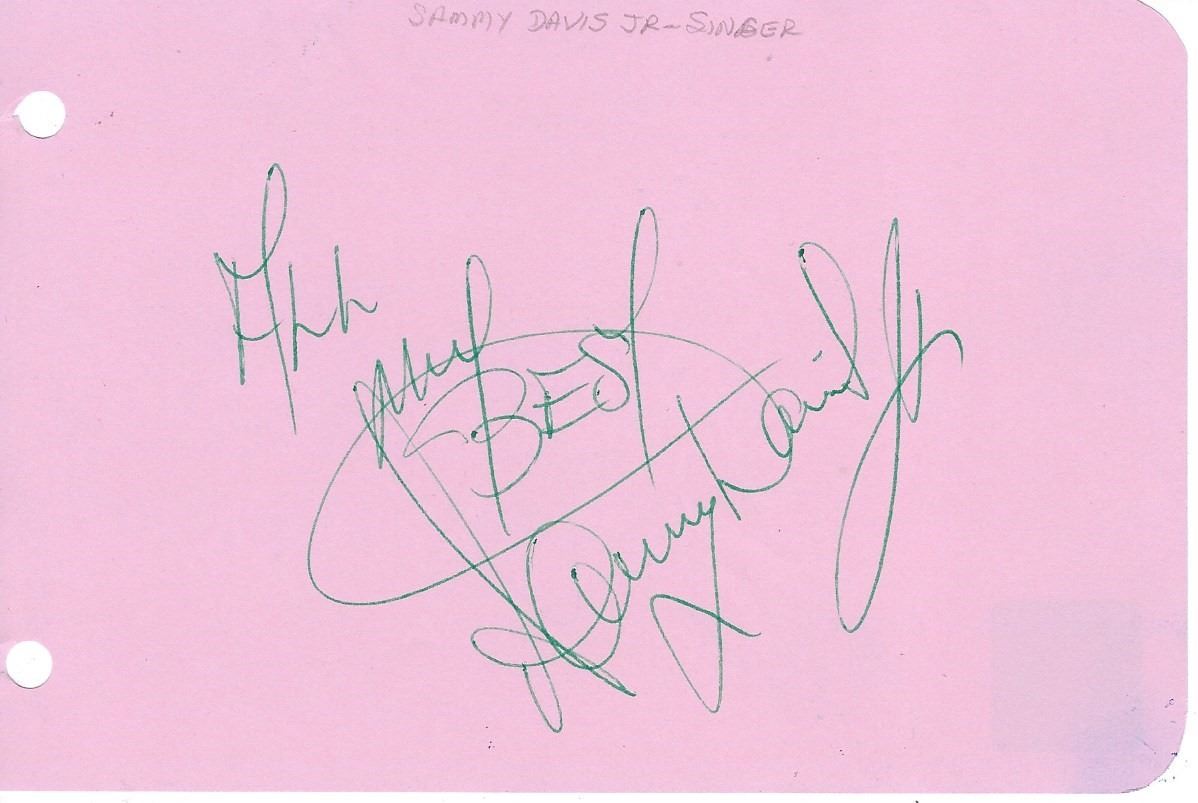 SAMMY DAVIS JR - SINGER
BEST
Sammy Davis Jr